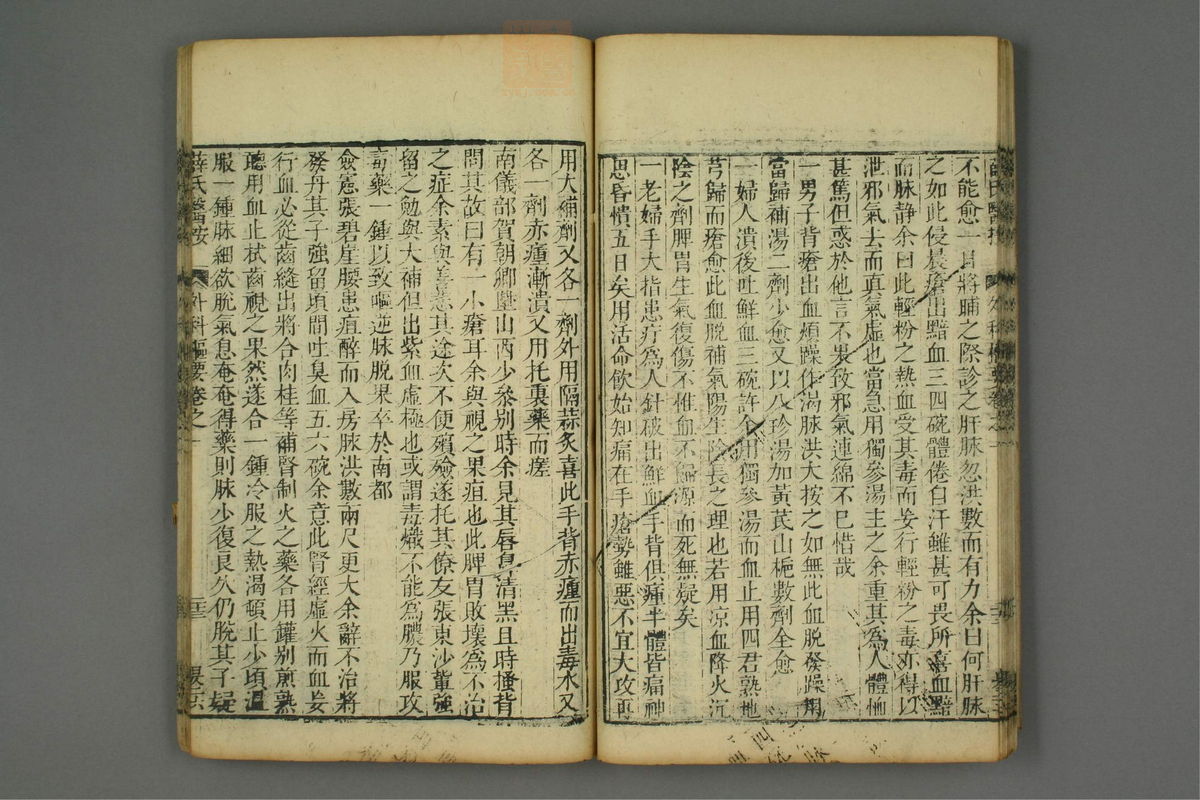 不能愈一日將晡之際診之肝脉忽洪數而有力余曰何肝脉
之如此侵晨瘡出黯血三四碗體倦自汗雖甚可畏所喜血黯
而脉静余曰此輕粉之熱血受其毒而妄行輕粉之毒亦得以
泄邪氣去而真氣虛也當急用獨參湯主之余重其為人體恤
甚篤但惑於他言不果致邪氣連綿不巳惜哉
一男子背瘡出血煩躁作渴脉洪大按之如無此血脫發躁用
當歸補湯二劑少愈又以八珍湯加黃芪山梔數劑全愈
一婦人潰後吐鮮血三碗許余用獨參湯而血止用四君熟地
芎歸而瘡愈此血脫補氣陽生陰長之理也若用凉血降火沉
陰之劑脾胃生氣復傷不惟血不歸源而死無疑矣
一老婦手大指患疔為人針破出鮮血手背俱腫半體皆痛神
思昏憒五日矣用活命飲始知痛在手瘡勢雖惡不宜大攻再
用大補劑又各一劑外用隔蒜炙喜此手背赤腫而出毒水又
各一劑赤腫漸潰又用托裏藥而瘥
南儀部賀朝卿陞山西少叅别時余見其唇鼻青黑且時搔背
問其故曰有一小瘡耳余與視之果疽也此脾胃敗壞為不治
之症余素與善意其途次不便殯殮遂托其僚友張東沙輩強
留之勉與大補但出紫血虛極也或謂毒熾不能為膿乃服攻
毒藥一鍾以致嘔逆脉脫果卒於南都
僉憲張碧崖腰患疽醉而入房脉洪數兩尺更大余辭不治將
發丹其子強留頃間吐臭血五六碗余意此腎經虛火而血妄
行血必從齒縫出將合肉桂等補腎制火之藥各用罐别煎熟
聽用血止拭齒視之果然遂合一鍾冷服之熱渴頓止少頃温
服一鍾脉細欲脫氣息奄奄得藥則脉少復良久仍脫其子疑
薛氏醫按 外科樞要卷之